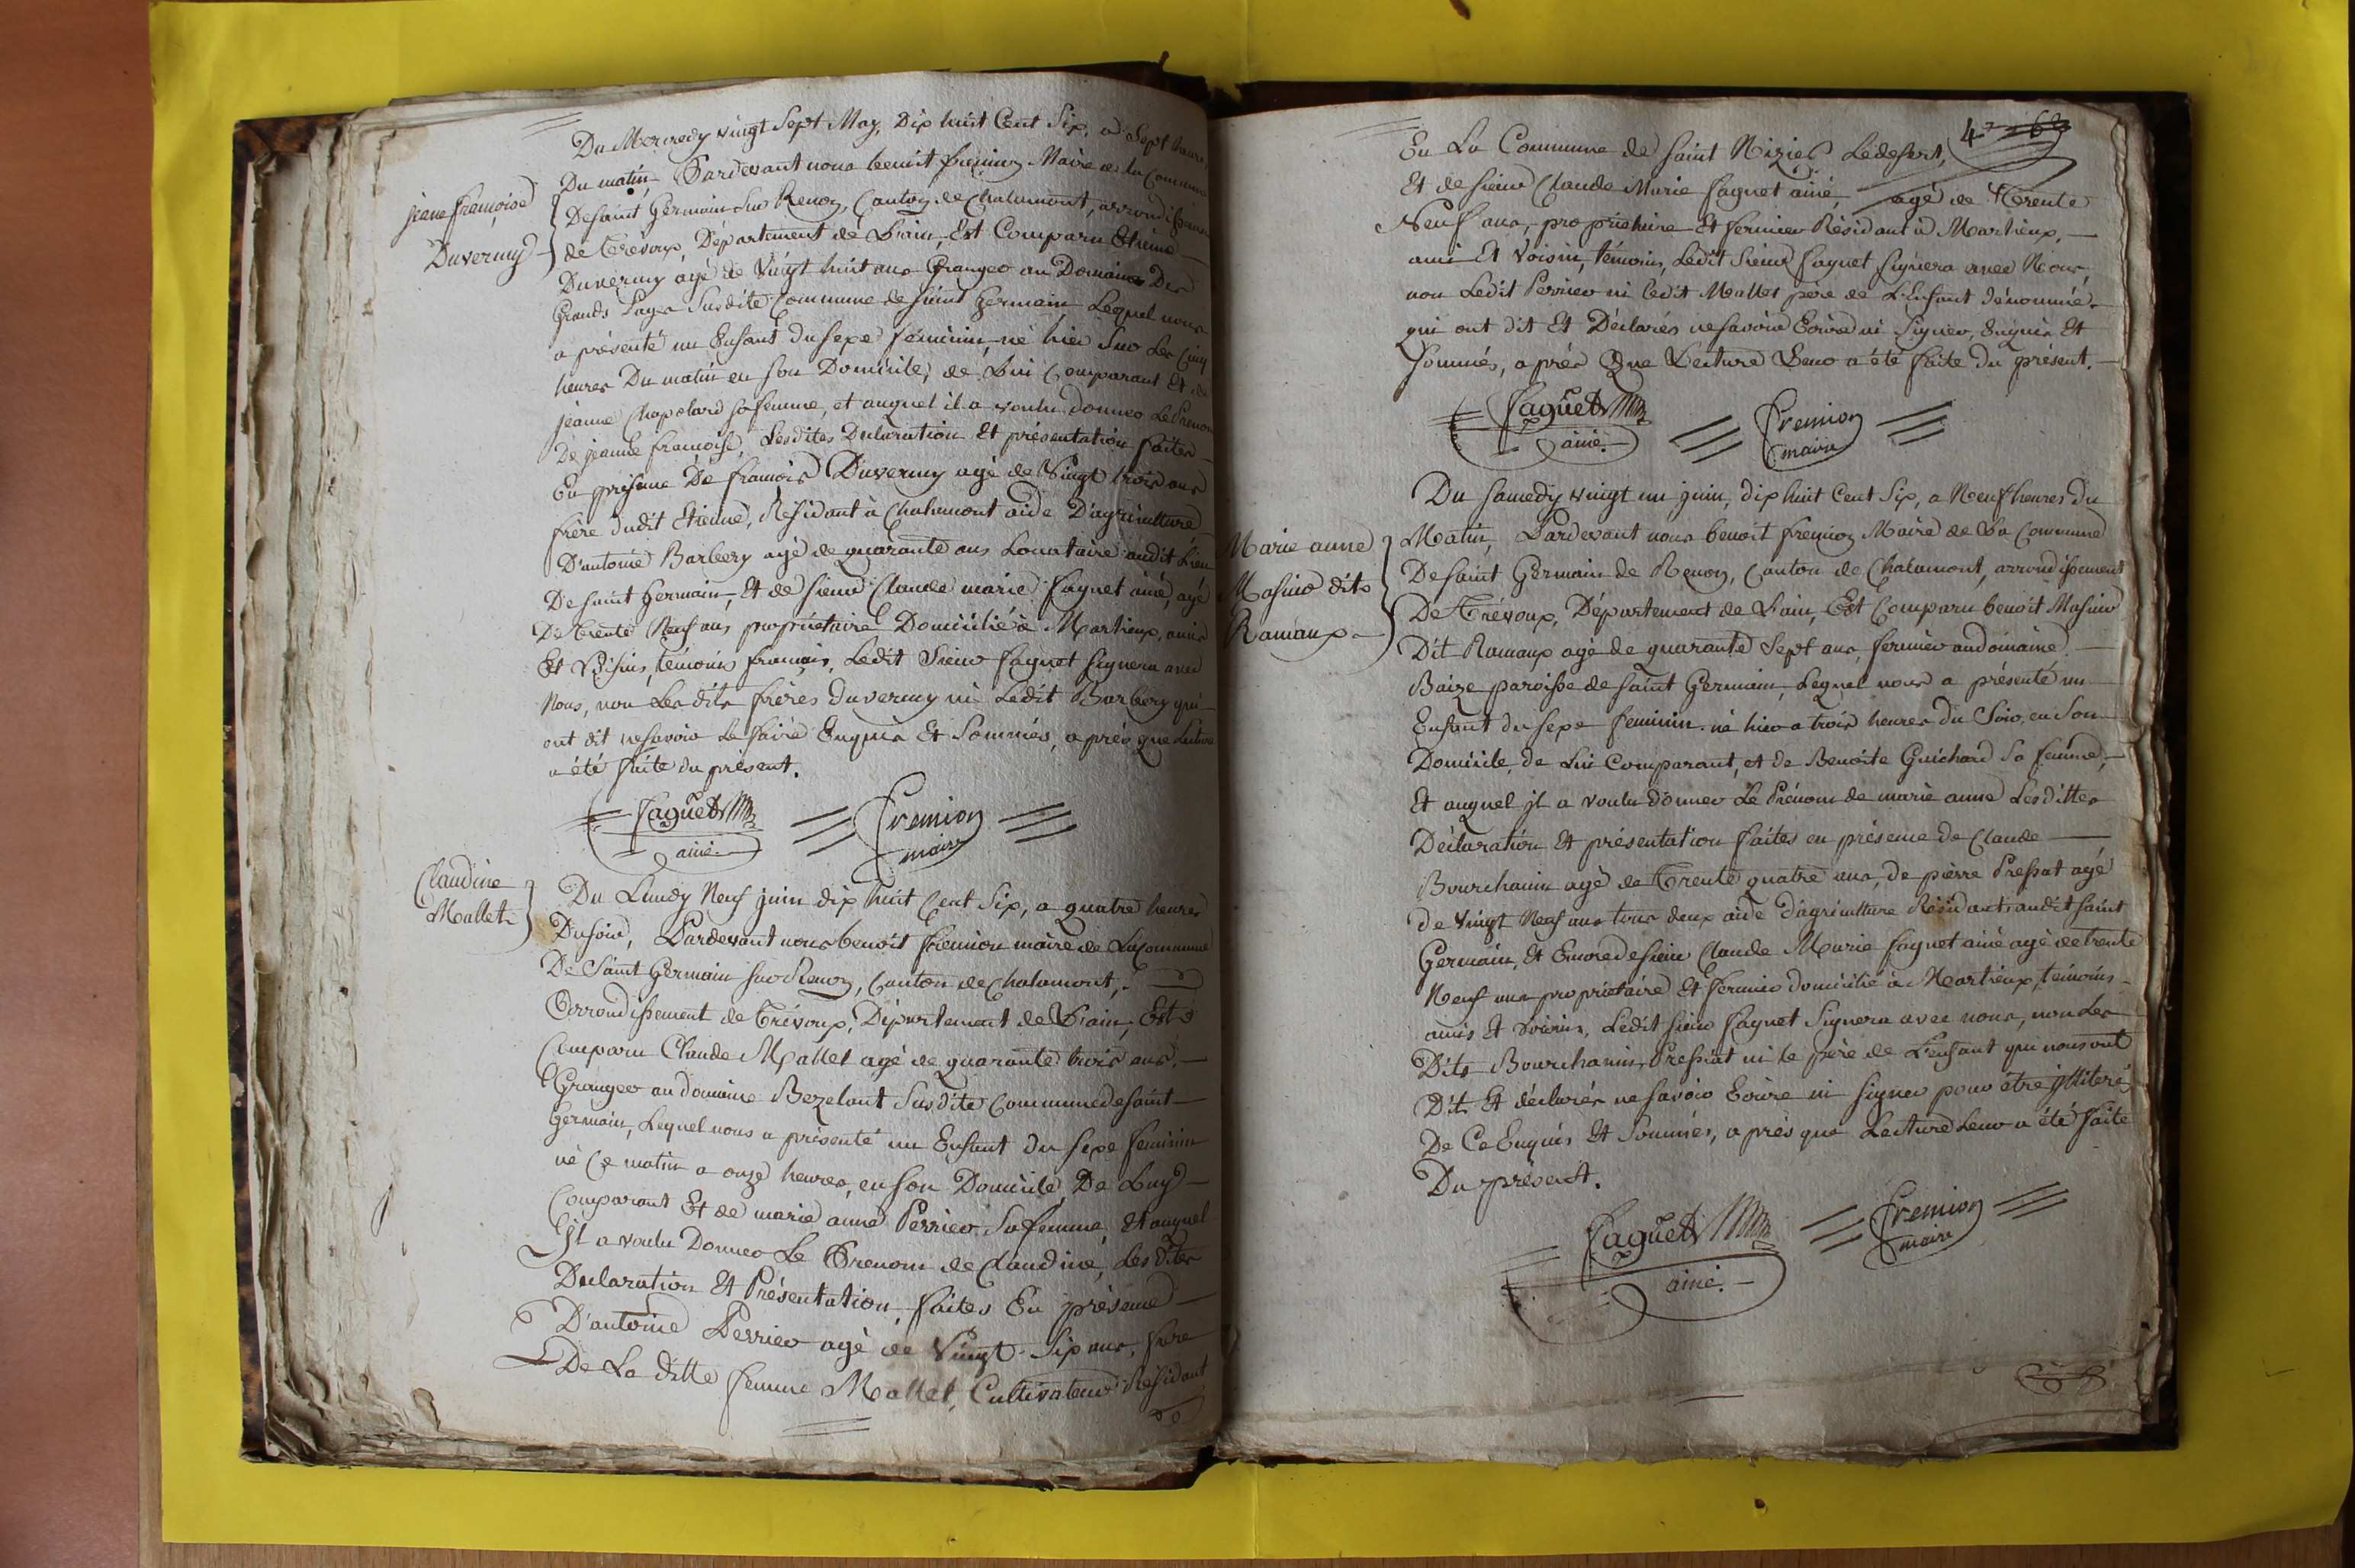 jeane françoise
Duverney
Du Mercredy vingt Sept May, Dix huit Cent Six, a Sept heures
Du matin, Pardevant nous benoit fremion Maire de la Commune
De saint Germain Sur Renon, Canton de Chalamont, arrondissement
de Trévoux, Département de L'ain, Est Comparu Etienne
Duverney agé de Vingt huit ans Granger au Domaine Des
Grands Susdite Commune de saint Germain, Lequel nous
a présenté un Enfant du sexe feminin, né hier Sur Les Cinq
heures Du matin en son Domicile, de Lui Comparant Et de
jeanne Chapolard sa femme, et auquel il a voulu donner Le Prenom
De jeanne francoise, Lesdites Declaration Et présentation faites
En présence De francois Duverney agé de Vingt trois ans
frère dudit Etienne, Résidant à Chalamont aide D'agriculture
D'antoine Barbery agé de quarante ans Locataire audit Lieu
De saint Germain, Et de sieur Claude marie faguet ainé, agé
De trente Neuf ans propriétaire Domicilié à Marlieux, amis
Et Voisins, témoins francais, Ledit Sieur faguet signera avec
Nous, non Les dits frères duverney ni Ledit Barbery qui
ont dit ne savoir Le faire Enquis Et Sommés, après que Lecture
a été faite du présent.
faguet
ainé
fremion
maire
Claudine
Mallet
Du Lundy Neuf juin dix huit Cent Six, a quatre heures
Du soir, Pardevant nous benoit fremion maire de La Commune
De Saint Germain sur Renon, Canton de Chalamont,
Arrondissement de Trévoux, Département de L'ain, Est
Comparu Claude Mallet agé de quarante trois ans,
Granger au domaine Bezelant Susdite Commune de saint
Germain, Lequel nous a présenté un Enfant du sexe feminin
né Ce matin a onze heures, en son Domicile, De Luy
Comparant Et de marie anne Perrier Sa femme, Et auquel
Il a voulu Donner Le Prenom de Claudine, Les dites
Declaration Et Présentation, faites En présence
D'antoine Perrier agé de Vingt Six ans, frere
De La ditte femme Mallet, Cultivateur Residant
4
En La Commune de saint Nizier Ledesert,
Et de sieur Claude Marie faguet ainé, agé de Trente
Neuf ans, propriétaire Et fermier Résidant à Marlieux,
ami Et Voisin, témoins, Ledit Sieur faguet signera avec Nous,
non Ledit Perrier ni ledit Mallet père de L'Enfant dénommé,
qui ont dit Et Déclarés ne savoir Ecrire ni Signer, Enquis Et
Sommés, après Que Lecture Leur a été faite du présent.
faguet
ainé
fremion
maire
Marie anne
Masuir dit
Ramaux
Du samedy vingt un juin, dix huit Cent Six, a Neuf heures du
Matin, Pardevant nous benoit fremion Maire de La Commune
De saint Germain de Renon, Canton de Chalamont, arrondissement
De Trévoux, Département de L'ain, Est Comparu benoit Masuir
Dit Ramaux agé de quarante Sept ans, fermier au domaine
Baize paroisse de saint Germain, Lequel nous a présenté un
Enfant du sexe feminin né hier a trois heures du Soir, en Son
Domicile, de Lui Comparant, et de Benoite Guichard Sa femme,
Et auquel il a voulu donner Le Prénom de marie anne Lesdittes
Déclaration Et présentation faites en présence de Claude
Bourchanin agé de Trente quatre ans, de pierre Pressat agé
de Vingt Neuf ans tous deux aide d'agriculture Résidants audit saint
Germain, Et Encore de sieur Claude Marie faguet ainé agé de trente
Neuf ans propriétaire Et fermier domicilié à Marlieux, temoins
amis Et voisins, Ledit sieur faguet Signera avec nous, non Les
Dits Bourchanin, Pressat ni le père de L'enfant qui nous ont
Dit Et déclarés ne savoir Ecrire ni signer pour être illiterés
De Ce Enquis Et Sommés, après que Lecture Leur a été faite
Du présent.
faguet
ainé
fremion
maire